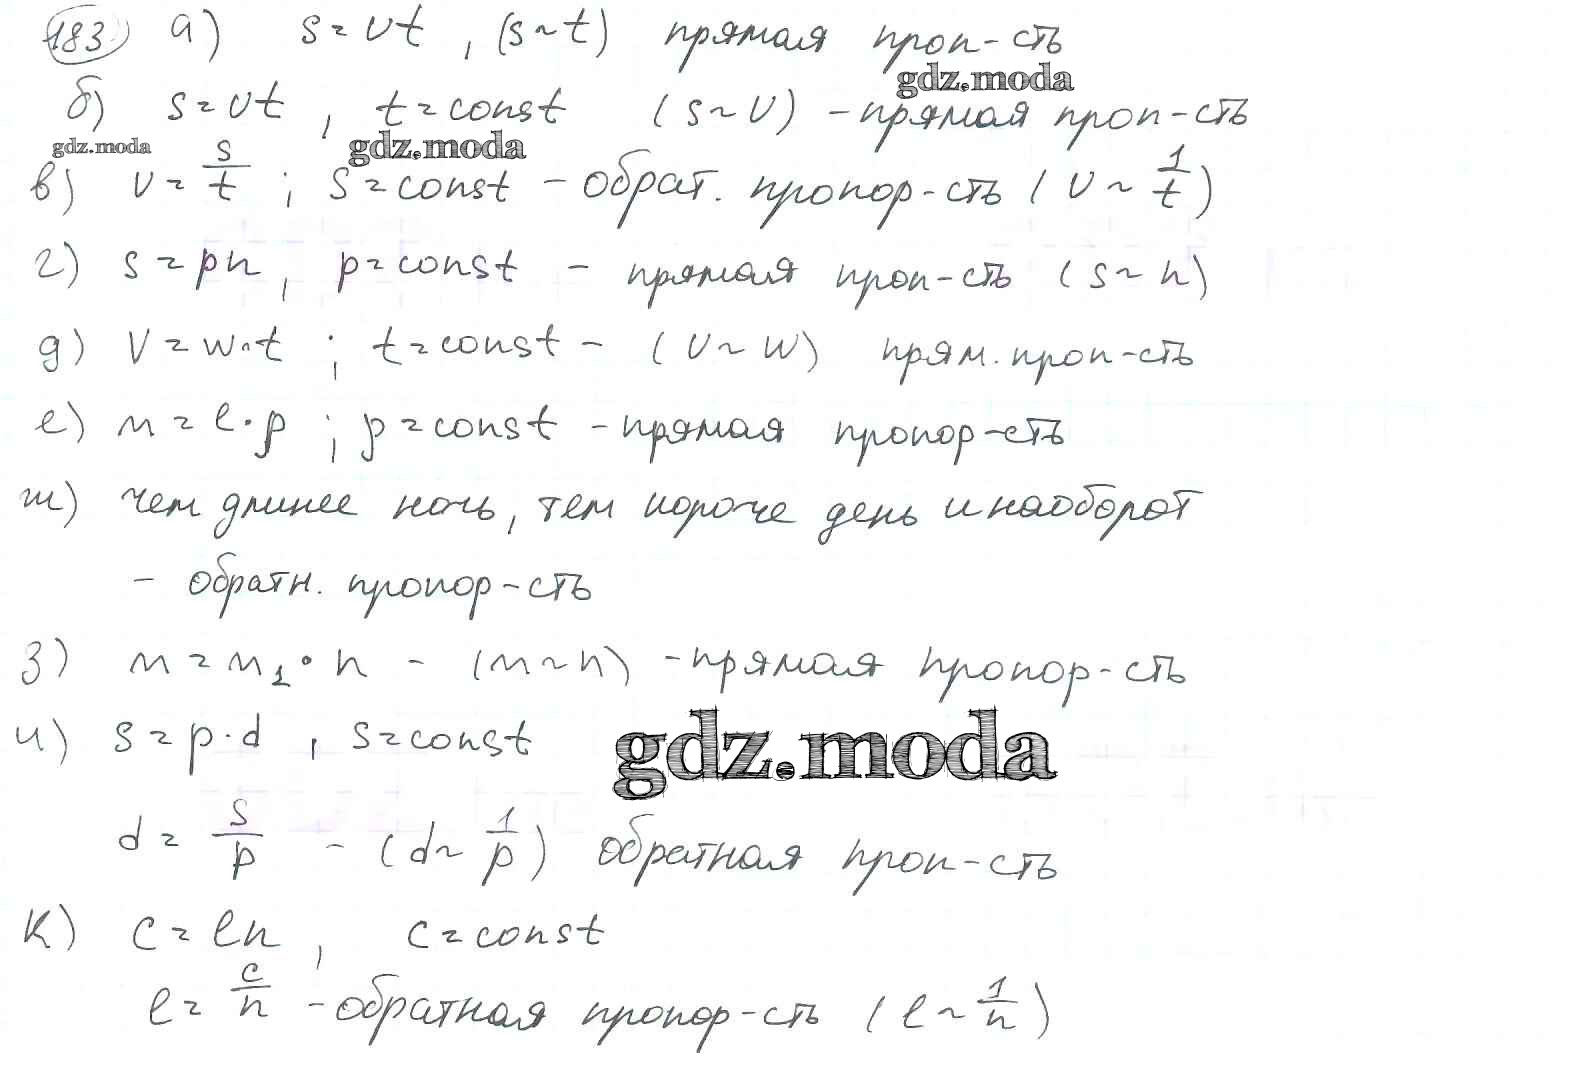 183) а) s = vt, (s ~ t) прямая проп-сть
gdz.moda
б) s = vt, t = const (s ~ v) - прямая проп-сть
gdz.moda gdz.moda
в) v = s/t ; s = const - обрат. пропор-сть (v ~ 1/t)
г) s = pn, p = const - прямая проп-сть (s ~ n)
д) V = w·t ; t = const - (v ~ w) прям. проп-сть
е) m = l·p ; p = const - прямая пропор-сть
ж) чем длинее ночь, тем короче день и наоборот
- обратн. пропор-сть
з) m = m₁·n - (m ~ n) - прямая пропор-сть
и) s = p·d, s = const
gdz.moda
d = s/p - (d ~ 1/p) обратная проп-сть
к) c = ln, c = const
l = c/n - обратная пропор-сть (l ~ 1/n)